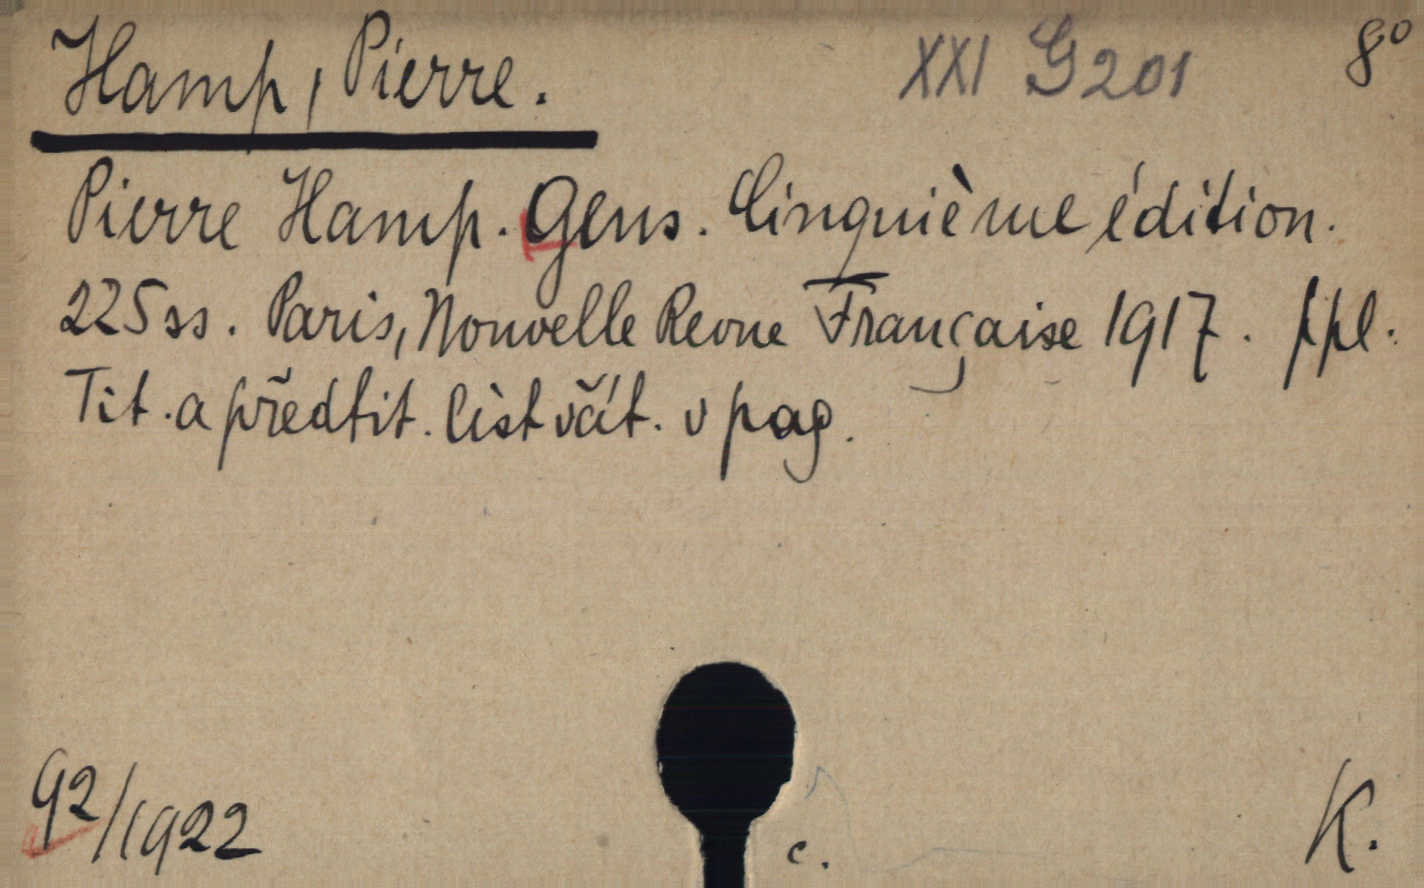 Hamp, Pierre. XXI G 201 8°
Pierre Hamp. Gens. Cinquième édition.
225 ss. Paris, Nouvelle Revue Française 1917. ppl.
Tit. a předtit. list včít. v pag.
92/1922 c. K.